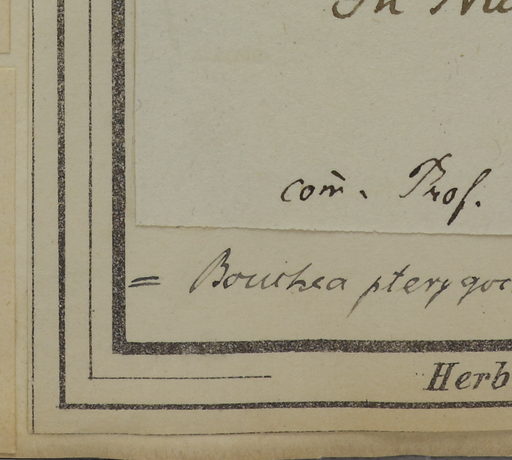 In Nu
com̄. Prof.
= Bouchea pterygoc
Herb